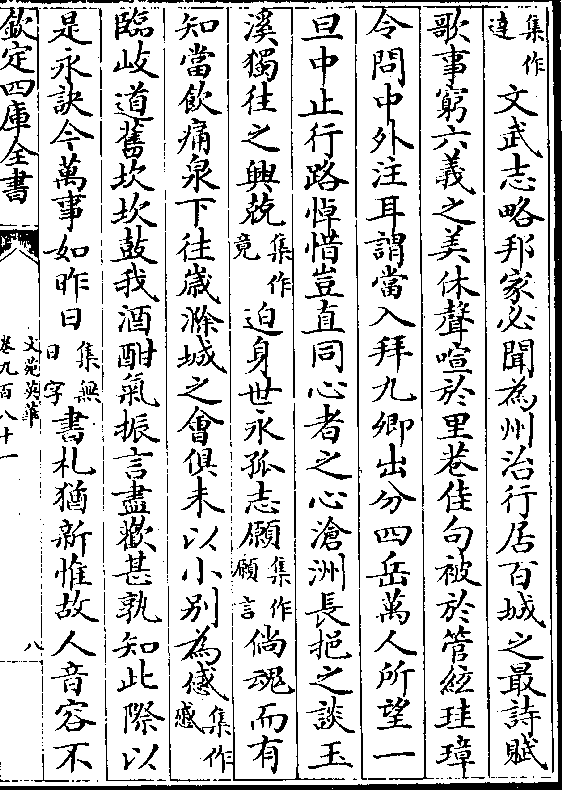 集作達文武志略邦家必聞為州治行居百城之最詩賦
歌事窮六義之美休聲喧於里巷佳句被於管絃珪璋
令問中外注耳謂當入拜九卿出分四岳萬人所望一
旦中止行路悼惜豈直同心者之心滄洲長挹之談玉
溪獨往之興兢集作竟迫身世永孤志願集作願言倘魂而有
知當飲痛泉下往歳滁城之會俱未以小別為慼集作感
臨岐道舊坎坎鼓我酒酣氣振言盡歡甚孰知此際以
是永訣今萬事如昨日集無日字書札猶新惟故人音容不
欽定四庫全書
文苑英華
卷九百八十一
八